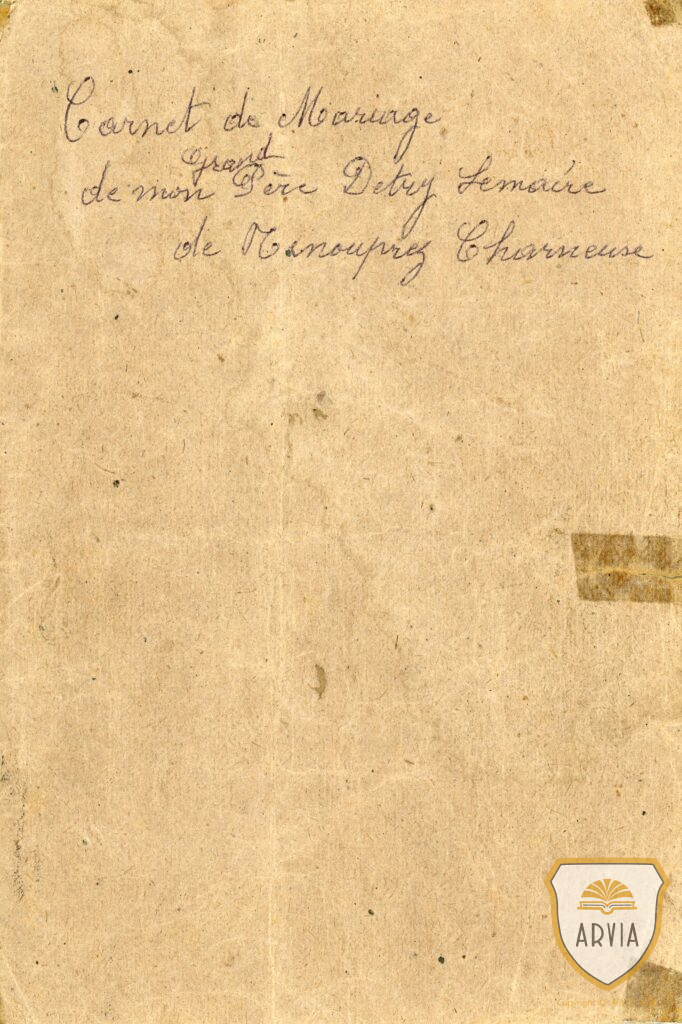 Carnet de Mariage
Grand
de mon Père Detry Lemaire
de Charneuse
ARVIA